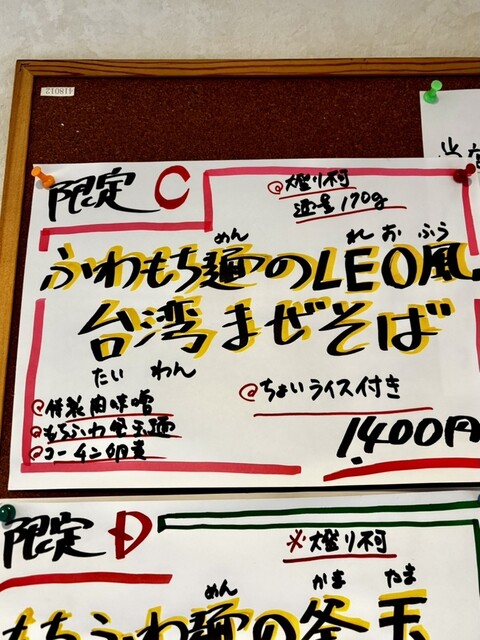 418012
限定 C
@増り不可
並量170g
めん
れおふう
ふわもち麺のLEO風
台湾まぜそば
たいわん
@特製肉味噌
@もちふわ釜玉麺
@コーチン卵黄
@ちょいライス付き
1,400円
限定 D
※増り不可
めん
かま たま
もちふわ麺の釜玉